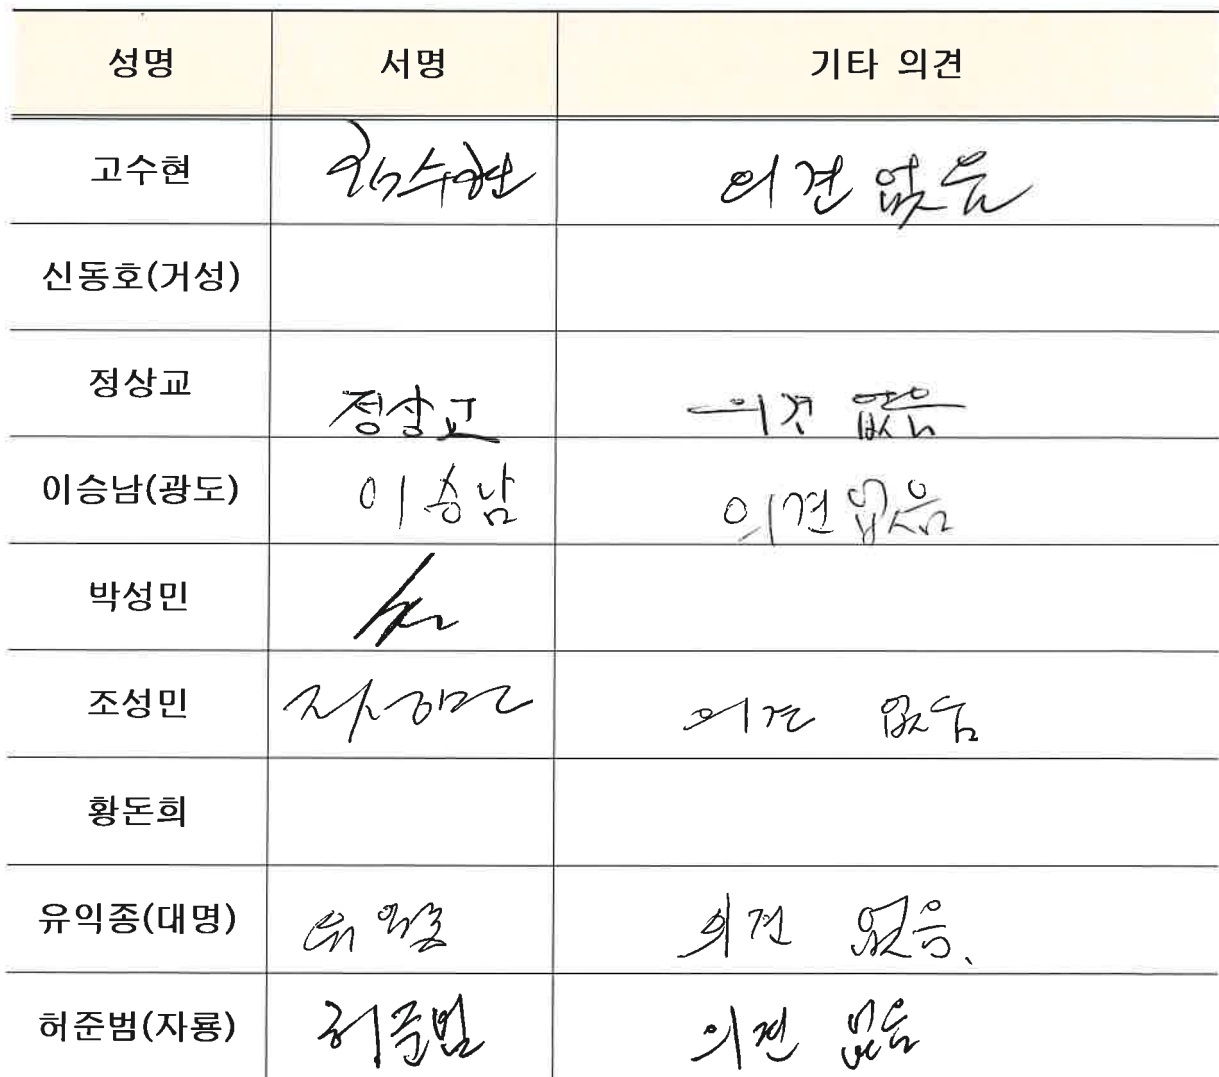 성명 서명 기타 의견
고수현 고수현 의견 없음
신동호(거성)
정상교 정상교 의견 없음
이승남(광도) 이승남 의견 없음
박성민
조성민 조성민 의견 없음
황돈희
유익종(대명) 유익종 의견 없음.
허준범(자룡) 허준범 의견 없음